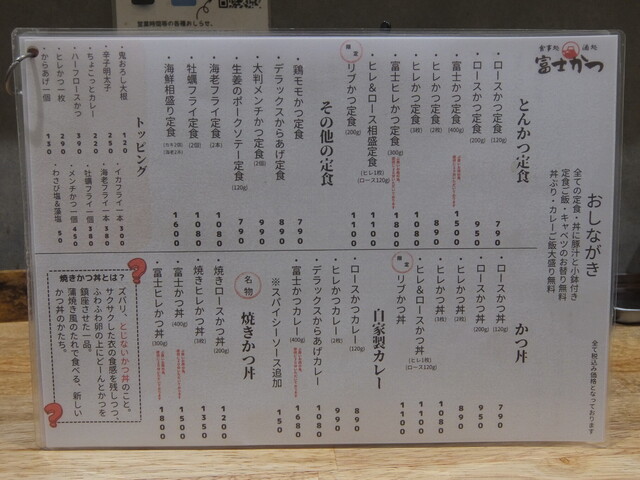 営業時間等の各種お知らせ。
食事処 酒処
富士かつ
おしながき
全ての定食・丼に豚汁と小鉢付き
定食ご飯・キャベツのお替り無料
丼ぶり・カレーご飯大盛り無料
全て税込み価格となっております
とんかつ定食
・ロースかつ定食(120g) 790
・ロースかつ定食(200g) 950
・富士かつ定食(400g) 1500
・ヒレかつ定食(2枚) 890
・ヒレかつ定食(3枚) 1080
・富士ヒレかつ定食(300g) 1800
・ヒレ&ロース相盛定食(ヒレ1枚)(ロース120g) 1100
限定
・リブかつ定食(200g) 1100
その他の定食
・鶏モモかつ定食 790
・デラックスからあげ定食 890
・大判メンチかつ定食(2個) 990
・生姜のポークソテー定食(120g) 790
・海老フライ定食(2本) 1080
・牡蠣フライ定食(2個) 1080
・海鮮相盛り定食(カキ2個)(海老2本) 1600
トッピング
・鬼おろし大根 120
・辛子明太子 250
・ちょこっとカレー 220
・ハーフロースかつ 390
・ヒレかつ一枚 290
・からあげ一個 150
・イカフライ一本 300
・海老フライ一本 380
・牡蠣フライ一個 380
・メンチかつ一個 450
・わさび塩&藻塩 50
かつ丼
・ロースかつ丼(120g) 790
・ロースかつ丼(200g) 950
・ヒレかつ丼(2枚) 890
・ヒレかつ丼(3枚) 1080
・ヒレ&ロースかつ丼(ヒレ1枚)(ロース120g) 1100
限定
・リブかつ丼 1100
自家製カレー
・ロースかつカレー(120g) 890
・ヒレかつカレー(2枚) 990
・デラックスからあげカレー 1080
・富士かつカレー(400g) 1680
※スパイシーソース追加 150
名物
焼きかつ丼
・焼きロースかつ丼(200g) 1200
・焼きヒレかつ丼(3枚) 1350
・富士かつ丼(400g) 1500
・富士ヒレかつ丼(300g) 1800
焼きかつ丼とは?
ズバリ、とじないかつ丼のこと。
サクサクした衣の食感を残しつつ、
ふわふわ卵の上にどーんとかつを
鎮座させた一品。
蒲焼き風のたれで食べる、新しい
かつ丼のかたち。